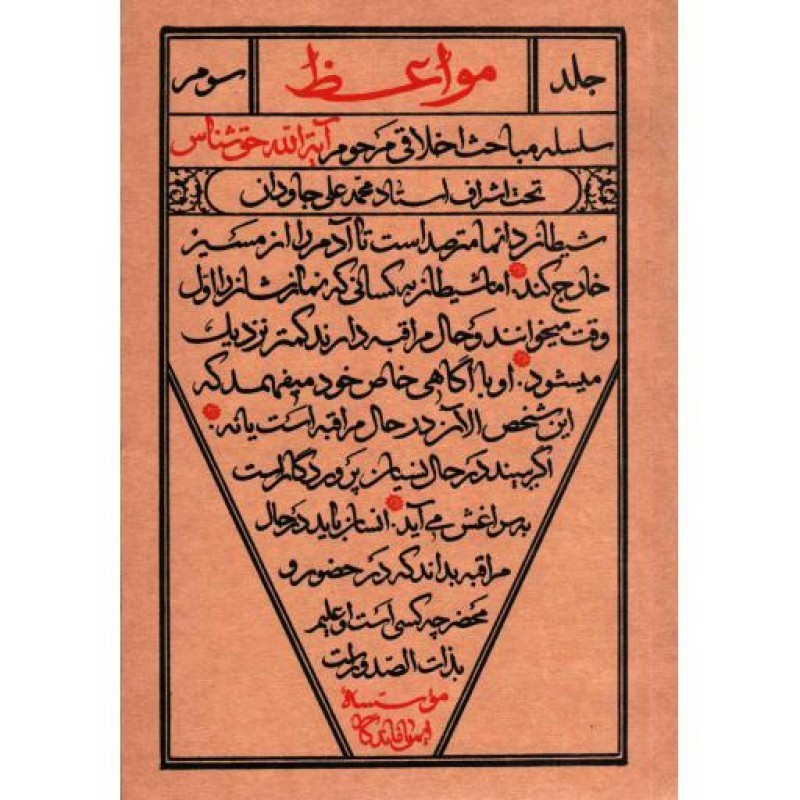 جلد مواعظ سوم
سلسله مباحث اخلاقی مرحوم آیة الله حق شناس
تحت اشراف استاد محمد علی جاودان
شیطان دائما مترصد است تا آدم را از مسیر
خارج کند. اما شیطان به کسانی که نمازشان را اول
وقت میخوانند و حال مراقبه دارند کمتر نزدیک
میشود. او با آگاهی خاص خود میفهمد که
این شخص الآن در حال مراقبه است یا نه.
اگر ببیند در حال نسیان پروردگار است
به سراغش می آید. انسان باید در حال
مراقبه بداند که در حضور و
محضر چه کسی است و او علیم
بذات الصدور است
مؤسسه
ایمان ماندگار